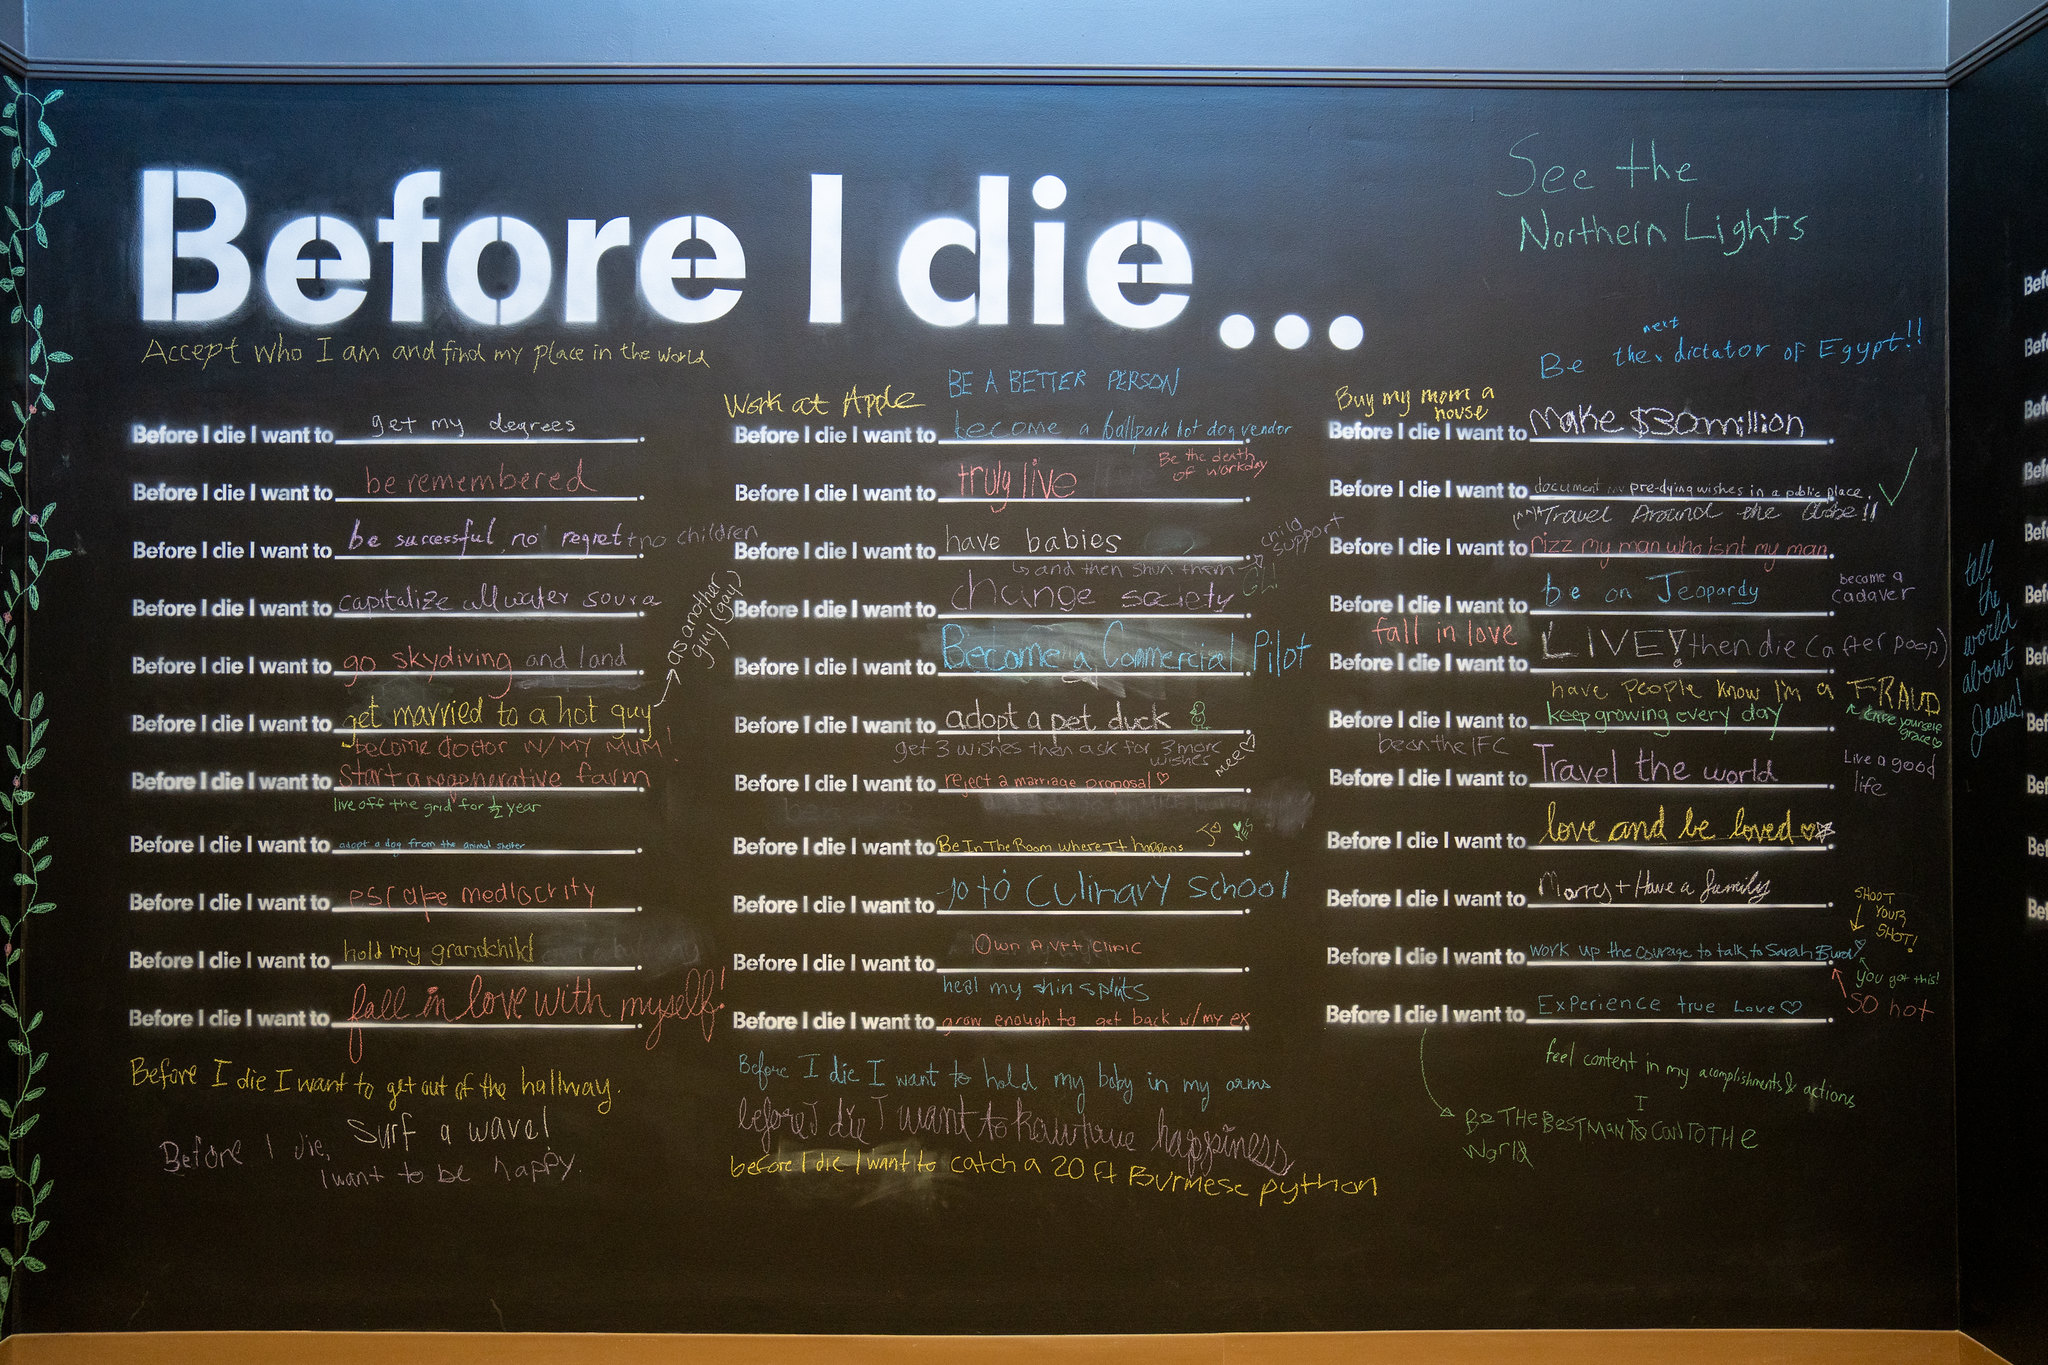 Before I die...
See the
Northern Lights
Accept who I am and find my place in the world
Be the next dictator of Egypt!!
Before I die I want to get my degrees.
Before I die I want to be remembered.
Before I die I want to be successful, no regret + no children
Before I die I want to capitalize all water
Before I die I want to go skydiving and land.
Before I die I want to get married to a hot guy.
as another
guy (gay)
become doctor w/ MY MUM!
Before I die I want to Start a regenerative farm.
live off the grid for 1/2 year
Before I die I want to adopt a dog from the animal shelter.
Before I die I want to escape mediocrity.
Before I die I want to hold my grandchild.
Before I die I want to fall in love with myself!
Before I die I want to get out of the hallway.
Surf a wave!
Before I die,
I want to be happy.
Work at Apple
BE A BETTER PERSON
Before I die I want to become a ballpark hot dog vendor
Be the death
of workday
Before I die I want to truly live.
Before I die I want to have babies.
and then shun them
child
support
Before I die I want to change society.
Before I die I want to Become a Commercial Pilot
Before I die I want to adopt a pet duck.
get 3 wishes then ask for 3 more
wishes
mee
Before I die I want to reject a marriage proposal.
Before I die I want to Be In The Room where It happens.
yes
Before I die I want to go to Culinary School
Before I die I want to Own A Vet clinic.
heal my shin splints
Before I die I want to grow enough to get back w/ my ex.
Before I die I want to hold my baby in my arms
before I die I want to happiness
before I die I want to catch a 20 ft Burmese python
Buy my mom a
house
Before I die I want to Make $30million.
Before I die I want to document my pre-dying wishes in a public place.
Travel Around the Globe!!
Before I die I want to rizz my man who isnt my man.
Before I die I want to be on Jeopardy.
become a
cadaver
fall in love
Before I die I want to LIVE! then die (after poop)
have people know I'm a FRAUD
Before I die I want to keep growing every day.
yourself
grace
be on the IFC
Before I die I want to Travel the world.
Live a good
life
Before I die I want to love and be loved.
Before I die I want to Marry + Have a family.
SHOOT
YOUR
SHOT!
Before I die I want to work up the courage to talk to Sarah
you got this!
SO hot
Before I die I want to Experience true Love.
feel content in my acomplishments & actions
BE THE BEST MAN I CAN TO THE
World
tell
the
world
about
Jesus!
Bef
Bef
Bef
Bef
Bef
Bef
Bef
Bef
Bef
Bef
Bef
Bef